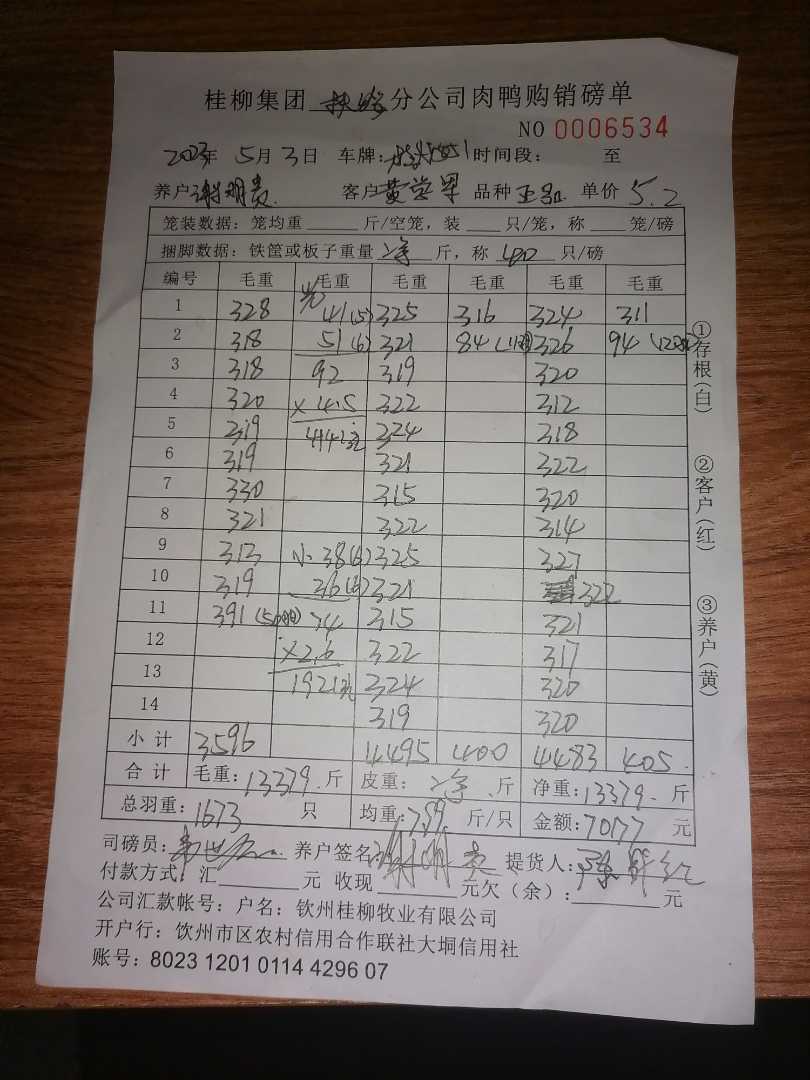 桂柳集团 扶绥 分公司肉鸭购销磅单
NO 0006534
2023年 5月 3日 车牌: 时间段: 至
养户 谢明贵 客户 黄 品种 单价 5.2
笼装数据: 笼均重 斤/空笼, 装 只/笼, 称 笼/磅
捆脚数据: 铁筐或板子重量 净 斤, 称 40 只/磅
编号 毛重 毛重 毛重 毛重 毛重 毛重
1 328 41(5) 325 316 324 311
2 318 51(6) 321 84 326 94
3 318 92 319 320
4 320 ×4.5 322 312
5 319 414元 324 318
6 319 321 322
7 330 315 320
8 321 322 314
9 313 小 38(6) 325 327
10 319 36 321 322
11 391 74 315 321
12 ×2.6 322 317
13 192元 324 320
14 319 320
小计 3596 4495 400 4483 405
合计 毛重: 13379 斤 皮重: 净 斤 净重: 13379 斤
总羽重: 1673 只 均重: 7.99 斤/只 金额: 70177 元
司磅员: 养户签名: 谢明贵 提货人:
付款方式: 汇 元 收现 元欠(余): 元
公司汇款帐号: 户名: 钦州桂柳牧业有限公司
开户行: 钦州市区农村信用合作联社大垌信用社
账号: 8023 1201 0114 4296 07
①存根(白)
②客户(红)
③养户(黄)